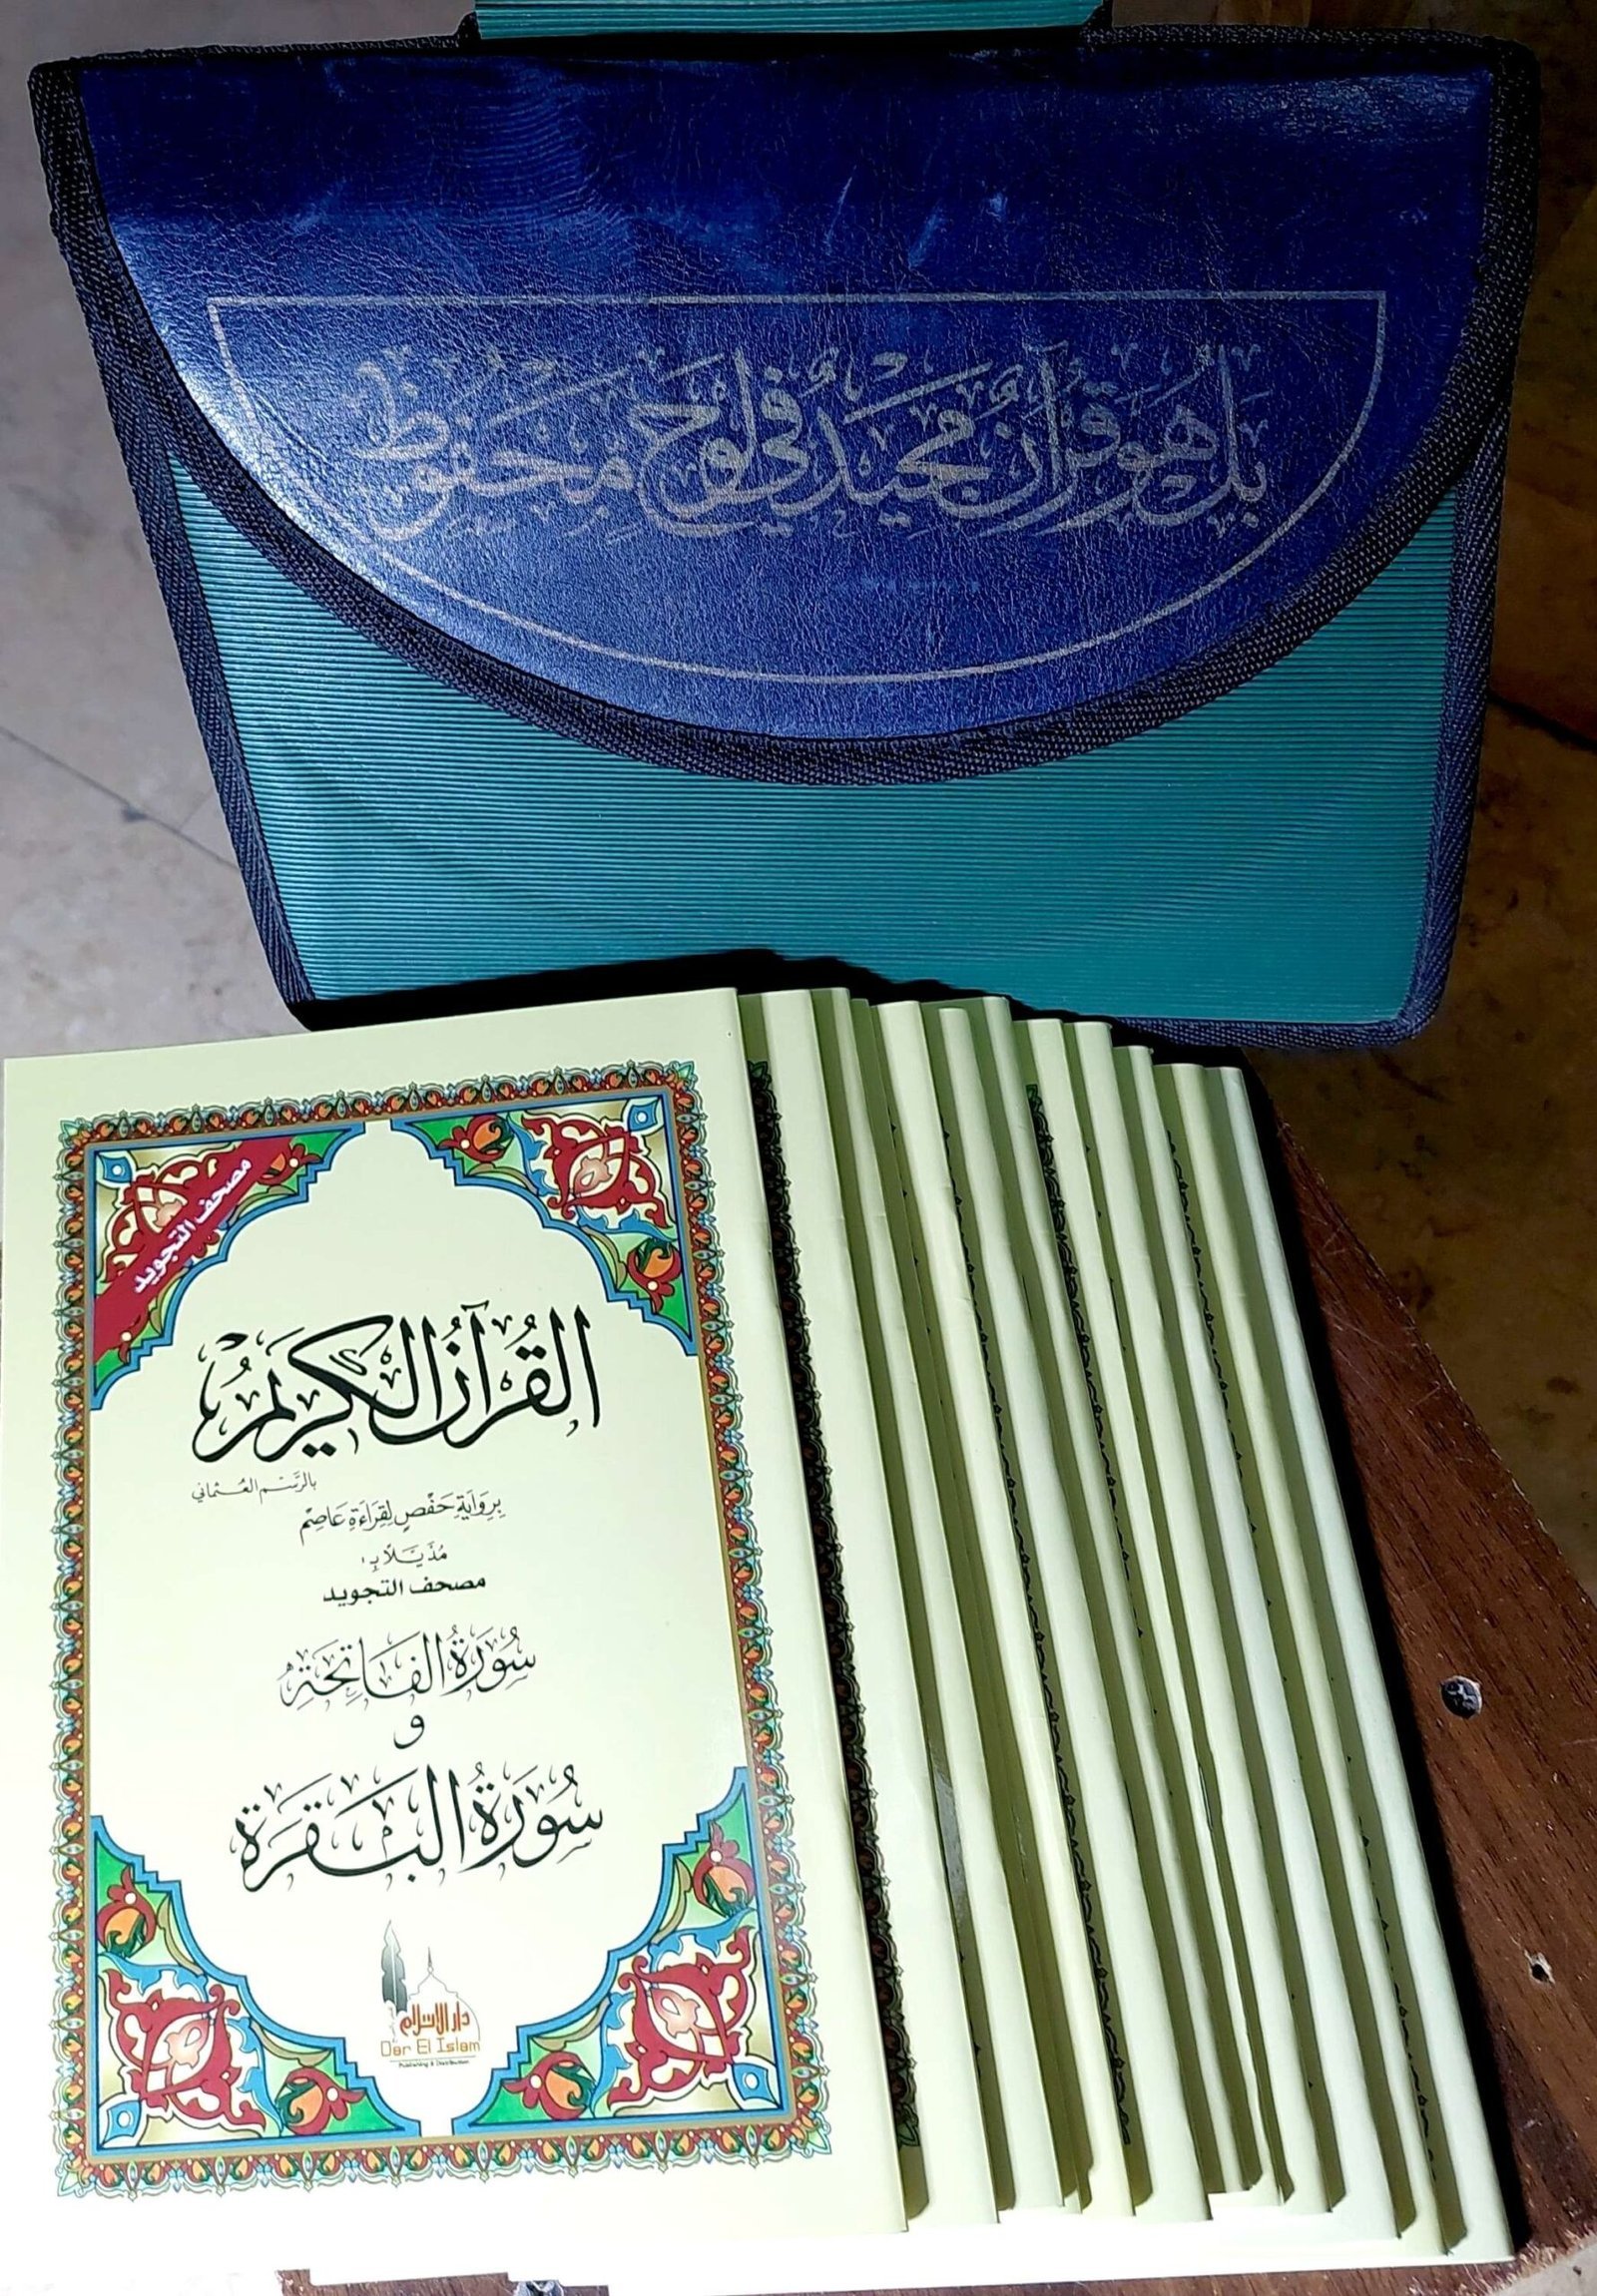 بَلْ هُوَ قُرْآنٌ مَّجِيدٌ فِي لَوْحٍ مَّحْفُوظٍ
مصحف التجويد
القُرآنُ الكَرِيمُ
بالرَّسْمِ العُثماني
بِرِوَايَةِ حَفْصٍ لِقِرَاءَةِ عَاصِمْ
مُذَيَّلاً بِ :
مصحف التجويد
سُورَةُ الفَاتِحَةِ
و
سُورَةُ البَقَرَة
دار الإسلام
Dar El Islam
Publishing & Distribution